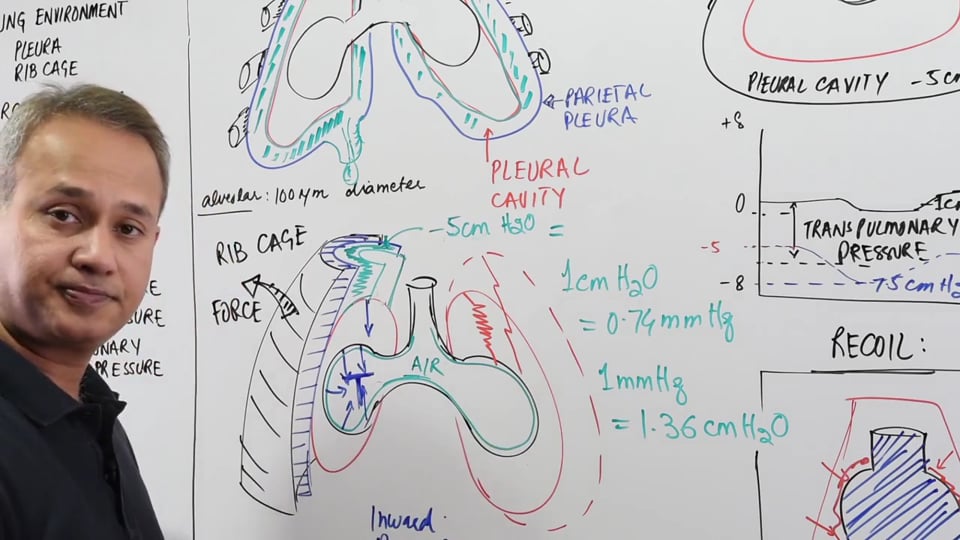 ENVIRONMENT
PLEURA
RIB CAGE
PARIETAL
PLEURA
PLEURAL
CAVITY
alveolar: 100 μm diameter
RIB CAGE
FORCE
-5cm H2O =
1cm H2O
= 0.74 mm Hg
1mmHg
= 1.36 cm H2O
A/R
T
Inward
PLEURAL CAVITY -5c
+8
0
-5
-8
TRANSPULMONARY
PRESSURE
-7.5cm H
RECOIL:
PRESSURE